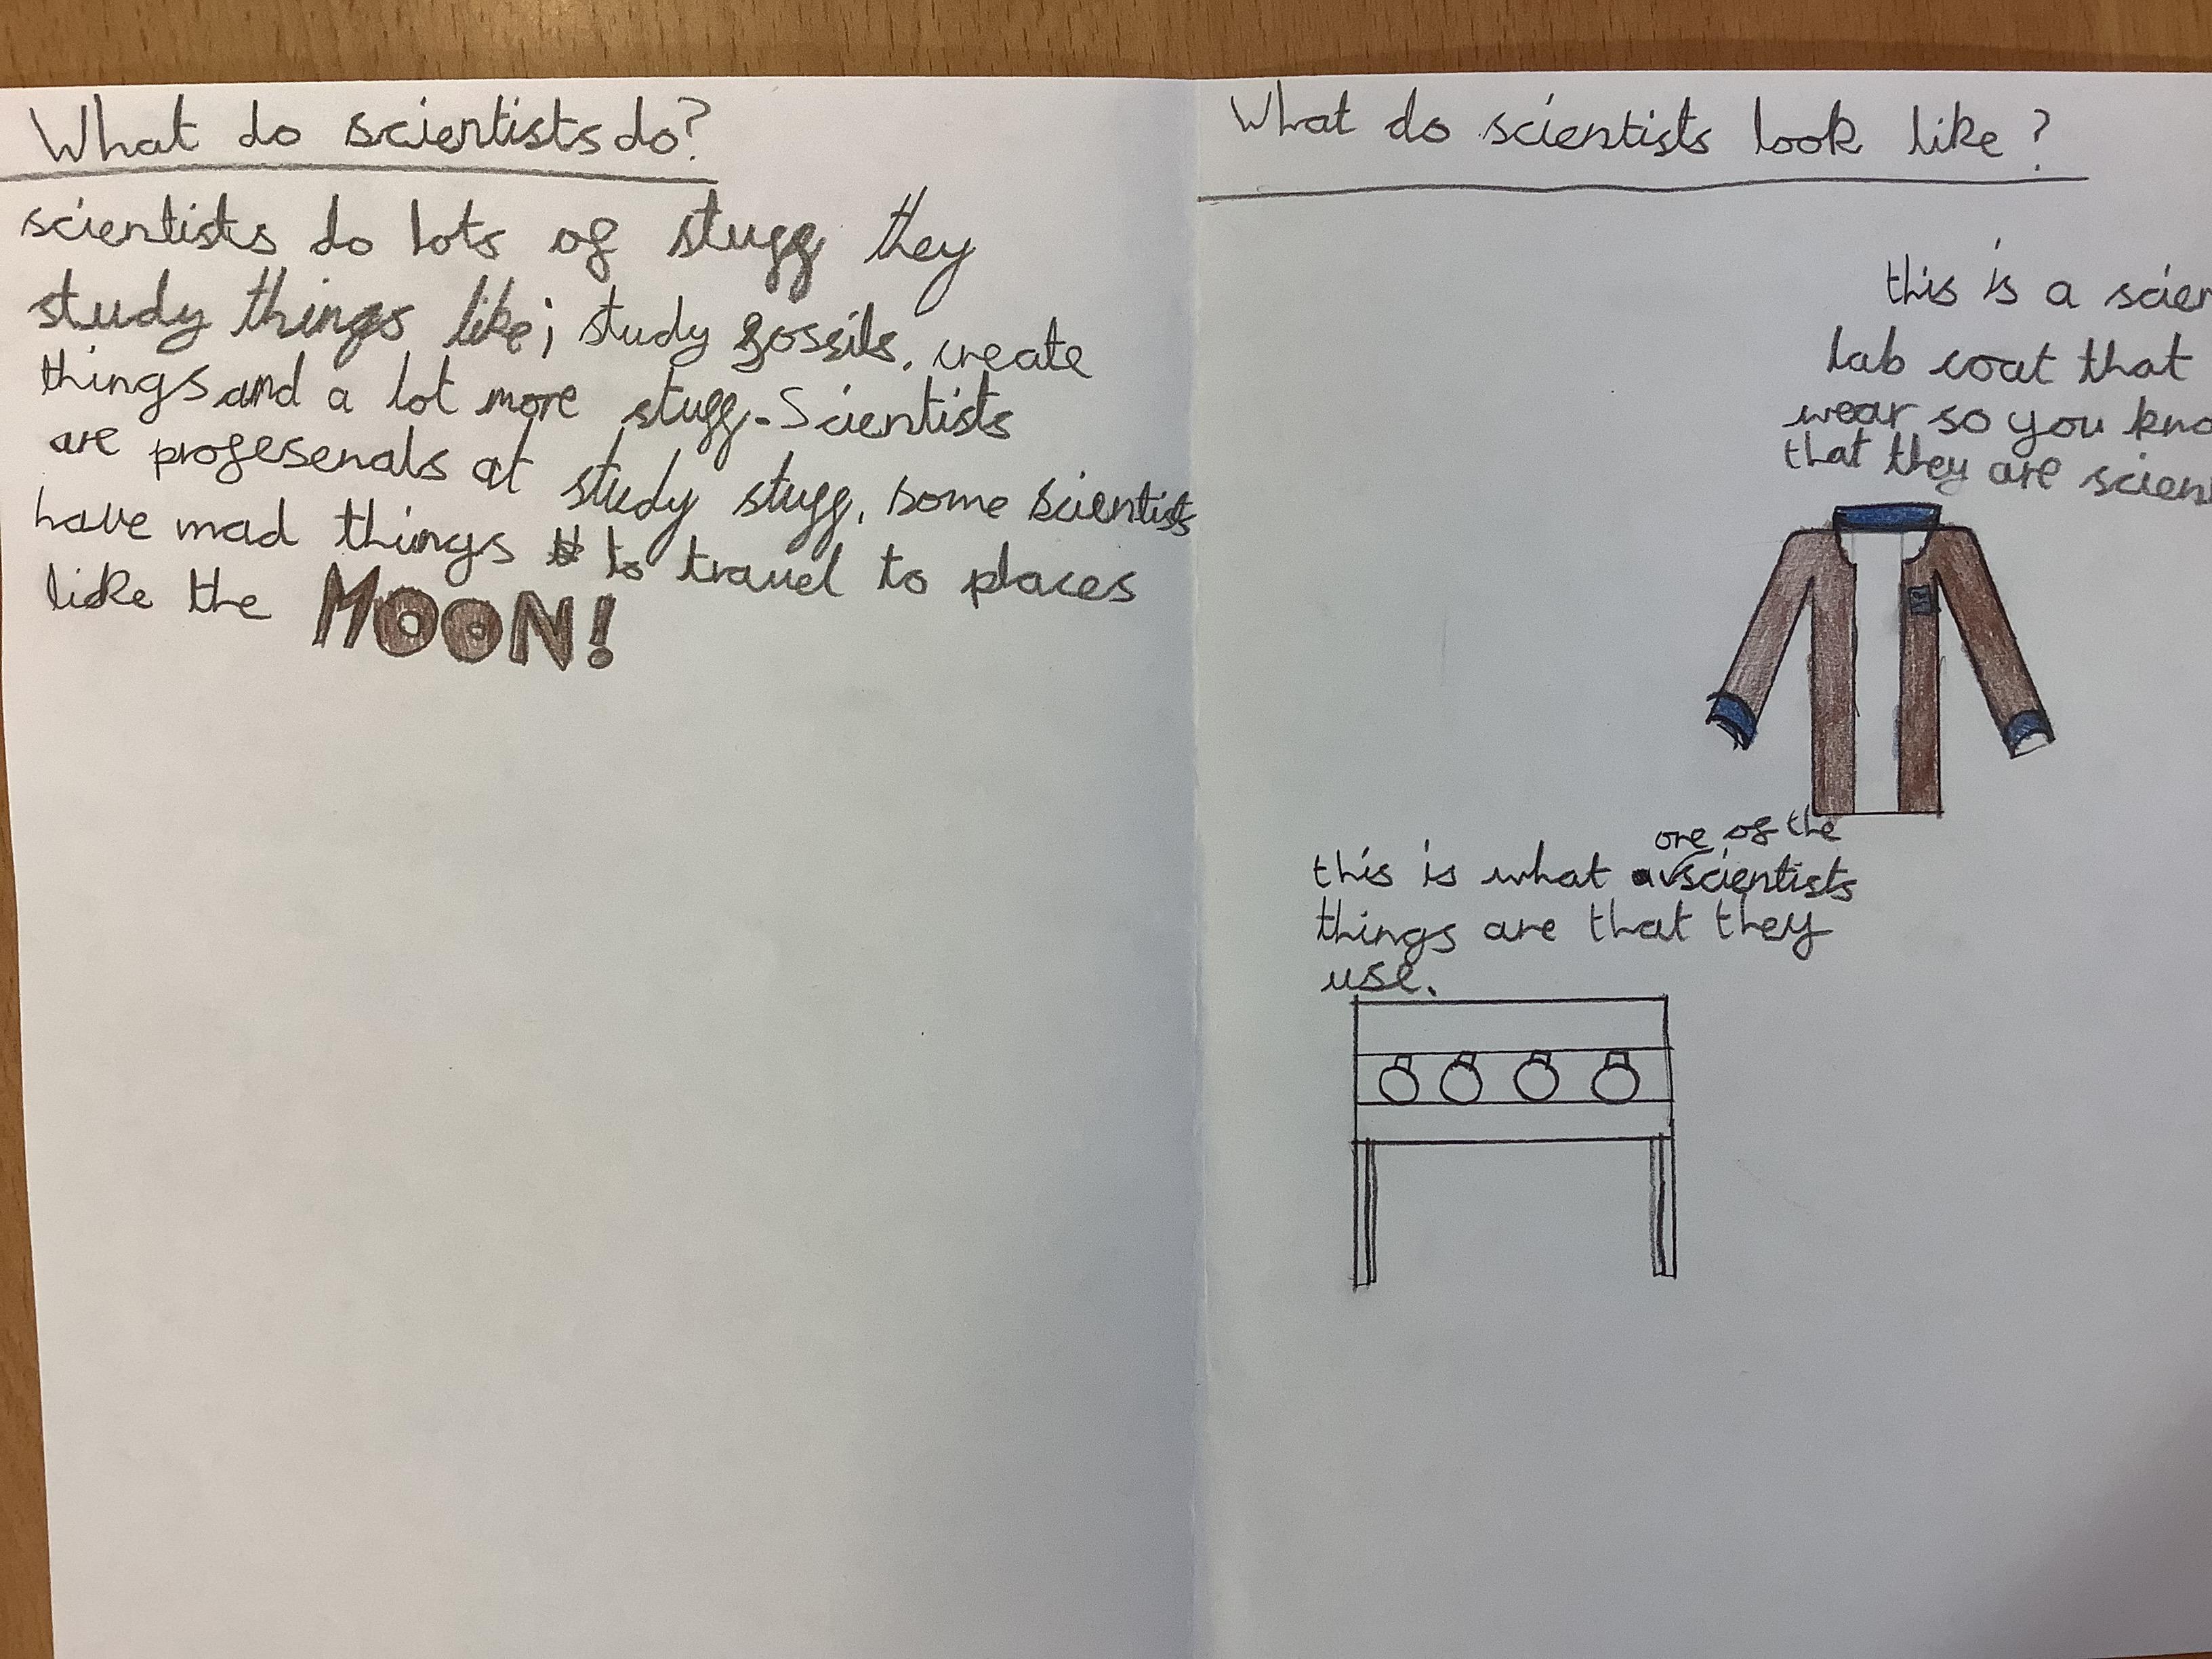 What do scientists do?
scientists do lots of stuff they
study things like; study fossils, create
things and a lot more stuff. Scientists
are profesenals at study stuff, some scientists
have mad things to travel to places
like the MOON!
What do scientists look like?
this is a scien
lab coat that
wear so you kno
that they are scien
one of the
this is what a scientists
things are that they
use.